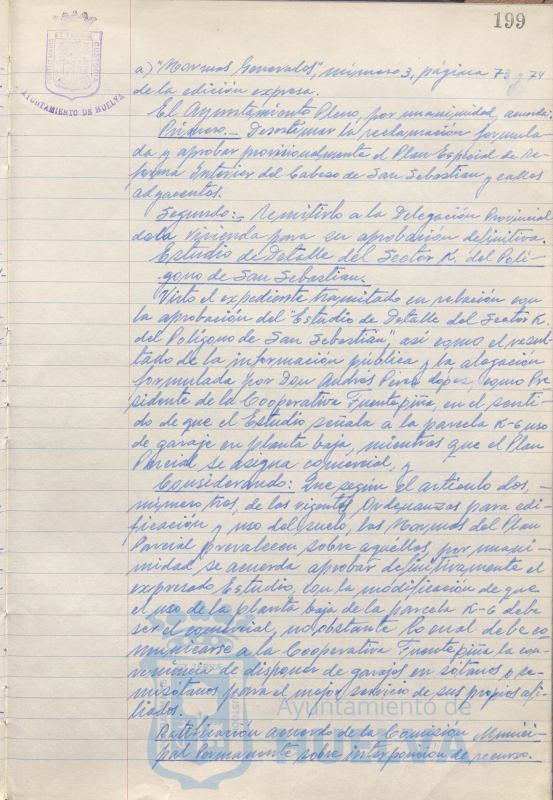 199
AYUNTAMIENTO DE HUELVA
a) "Normas Generales", número 3, página 73 y 74
de la edición expresa.
El Ayuntamiento Pleno, por unanimidad, acuerda:
Primero.- Desestimar la reclamación formula-
da y aprobar provisionalmente el Plan Especial de Re-
forma Interior del Cabezo de San Sebastian y calles
adyacentes.
Segundo:- Remitirlo a la Delegación Provincial
de la Vivienda para su aprobación definitiva.
Estudio de Detalle del Sector K. del Polí-
gono de San Sebastian.
Visto el expediente tramitado en relación con
la aprobación del "Estudio de Detalle del Sector K.
del Polígono de San Sebastián", así como el resul-
tado de la información pública y la alegación
formulada por Don Andrés Pérez López, como Pre
sidente de la Cooperativa Fuentepiña, en el senti-
do de que el Estudio señala a la parcela K-6 uso
de garaje en planta baja, mientras que el Plan
Parcial se asigna comercial, y
Considerando: Que según el artículo dos,-
número tres, de las vigentes Ordenanzas para edi-
ficación y uso del suelo, las Normas del Plan
Parcial prevalecen sobre aquéllas, por unani-
midad se acuerda aprobar definitivamente el
expresado Estudio, con la modificación de que
el uso de la planta baja de la parcela K-6 debe
ser el comercial, no obstante lo cual debe co-
municarse a la Cooperativa Fuentepiña la con-
veniencia de disponer de garajes en sótanos o se-
misótanos para el mejor servicio de sus propios afi-
liados.
Ratificación acuerdo de la Comisión Munici-
pal Permanente sobre interposición de recurso.
Ayuntamiento de
HUELVA